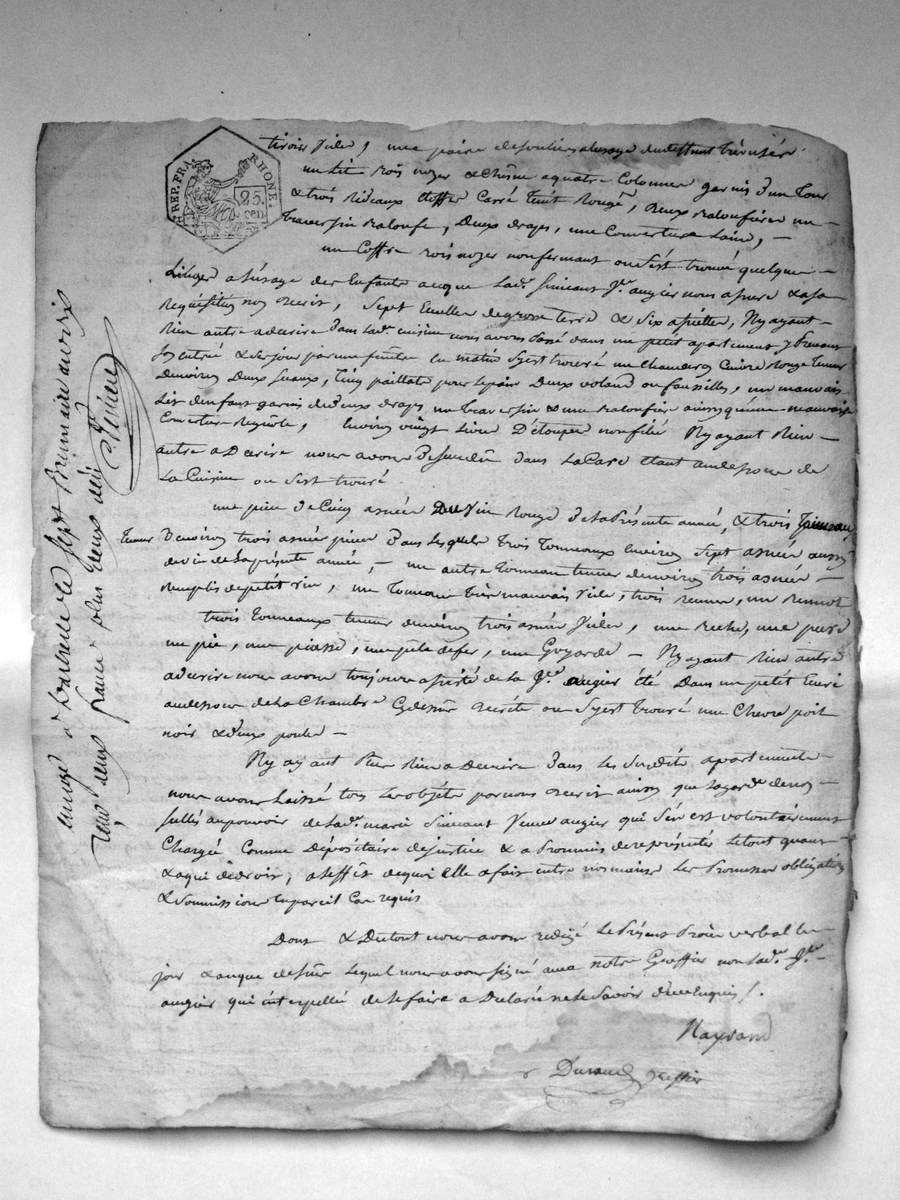 REP. FRA. RHONE.
25 CEN
tiroir vide, une paire de souliers a lusage du deffunt très usés
un lit bois noyer & chêne a quatre Colonnes garnis d'un tour
& trois Rideaux étoffe Carré teint Rouge, deux
traversin balouffe, Deux draps, une Couverture Laine, -
un Coffre bois noyer non fermant ou s'est trouvé quelque -
Linges a l'usage des Enfants a ceque Lad. Simeant Ve augier nous assuré & a sa
Requisition nos decrit, Sept écuelles de grosse terre & Six assiettes, N'y ayant -
Rien autre a decrire dans lad. cuisine nous avons passé dans un petit apartement y prenant
son entré & son jour par une fenêtre en matin s'y est trouvé un chauderon Cuivre Rouge tenant
d'environ Deux seaux, Cinq paillats pour le pain Deux volands ou faucilles, un mauvais
Lit d'enfant garnis de deux draps, un traversin & une balouffière ainsi qu'une mauvaise
Couverture, Environ vingt Livres D'étoupes non filé N'y ayant Rien -
autre a Decrire nous avons Descendu dans La Cave étant au dessous de
La Cuisine ou s'est trouvé
une pièce de Cinq asnées Du Vin Rouge de la Présente année, & trois Tonneaux
tenant D'environ trois asnées pièce Dans lesquels trois Tonneaux Environ Sept asnées aussy
de vin de la présente année, - un autre Tonneau tenant d'environ trois asnées -
Remplis de petit vin, un Tonneau très mauvais vide, trois bennes, un
trois Tonneaux tenant d'environ trois asnées vides, une
un pic, une piasse, une pele de fer, une Goyarde - N'y ayant Rien autre
a decrire nous avons toujours assisté de la Ve augier été Dans un petit
au dessous de La Chambre Cy dessus décrite ou s'y est Trouvé une Chevre poil
noir & deux poules -
N'y ayant Plus Rien a Decrire Dans les Susdits apartements
nous avons Laissé tous les objets par nous decrit ainsi que la garde de nos
sellés au pouvoir de Lad. marie Simeant Veuve augier qui s'en est volontairement
Chargé Comme Depositaire de justice & a Promis de representer le tout quand
& a qui de droit, a l'effet de quoi elle a fait entre nos mains Les Promesses obligations
& soumissions en pareil Cas requis
Dont & Du tout nous avons redigé le Présent Procès verbal les
jour & an que dessus lequel nous avons signé avec notre Greffier non lad. Ve
augier qui interpellée de le faire a Declaré ne le Savoir de ce enquis /.
Nayrand
Durand Greffier
enregé a Larbresle le Sept Brimaire an dix
Reçu deux francs plus vingt deux